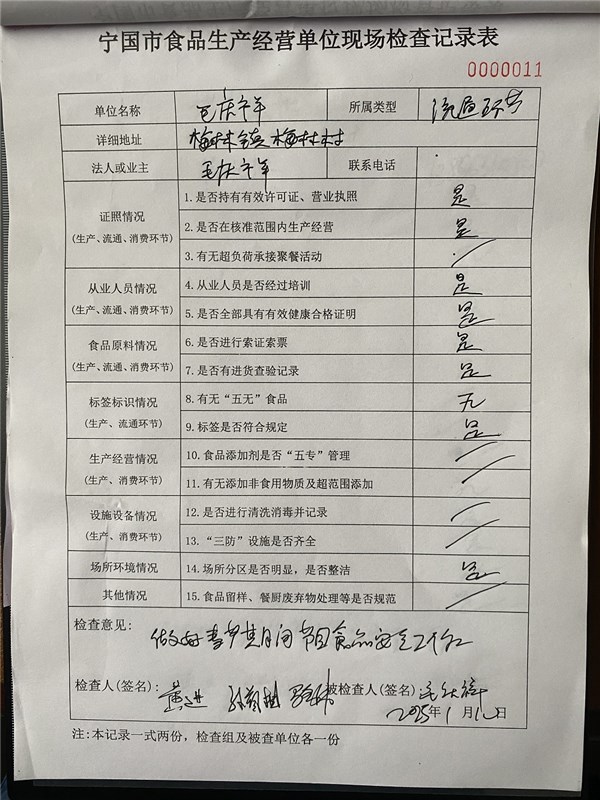 宁国市食品生产经营单位现场检查记录表
0000011
单位名称 所属类型 流通环节
详细地址 梅林镇梅林村
法人或业主 联系电话
证照情况
(生产、流通、消费环节)
1.是否持有有效许可证、营业执照 是
2.是否在核准范围内生产经营 是
3.有无超负荷承接聚餐活动 /
从业人员情况
(生产、流通、消费环节)
4.从业人员是否经过培训 是
5.是否全部具有有效健康合格证明 是
食品原料情况
(生产、流通、消费环节)
6.是否进行索证索票 是
7.是否有进货查验记录 是
标签标识情况
(生产、流通环节)
8.有无“五无”食品 无
9.标签是否符合规定 是
生产经营情况
(生产、消费环节)
10.食品添加剂是否“五专”管理 /
11.有无添加非食用物质及超范围添加 /
设施设备情况
(生产、消费环节)
12.是否进行清洗消毒并记录 /
13.“三防”设施是否齐全 /
场所环境情况 14.场所分区是否明显，是否整洁 是
其他情况 15.食品留样、餐厨废弃物处理等是否规范 /
检查意见:
做好春节期间节日食品安全工作
检查人(签名): 被检查人(签名)
2025年1月 日
注:本记录一式两份，检查组及被查单位各一份